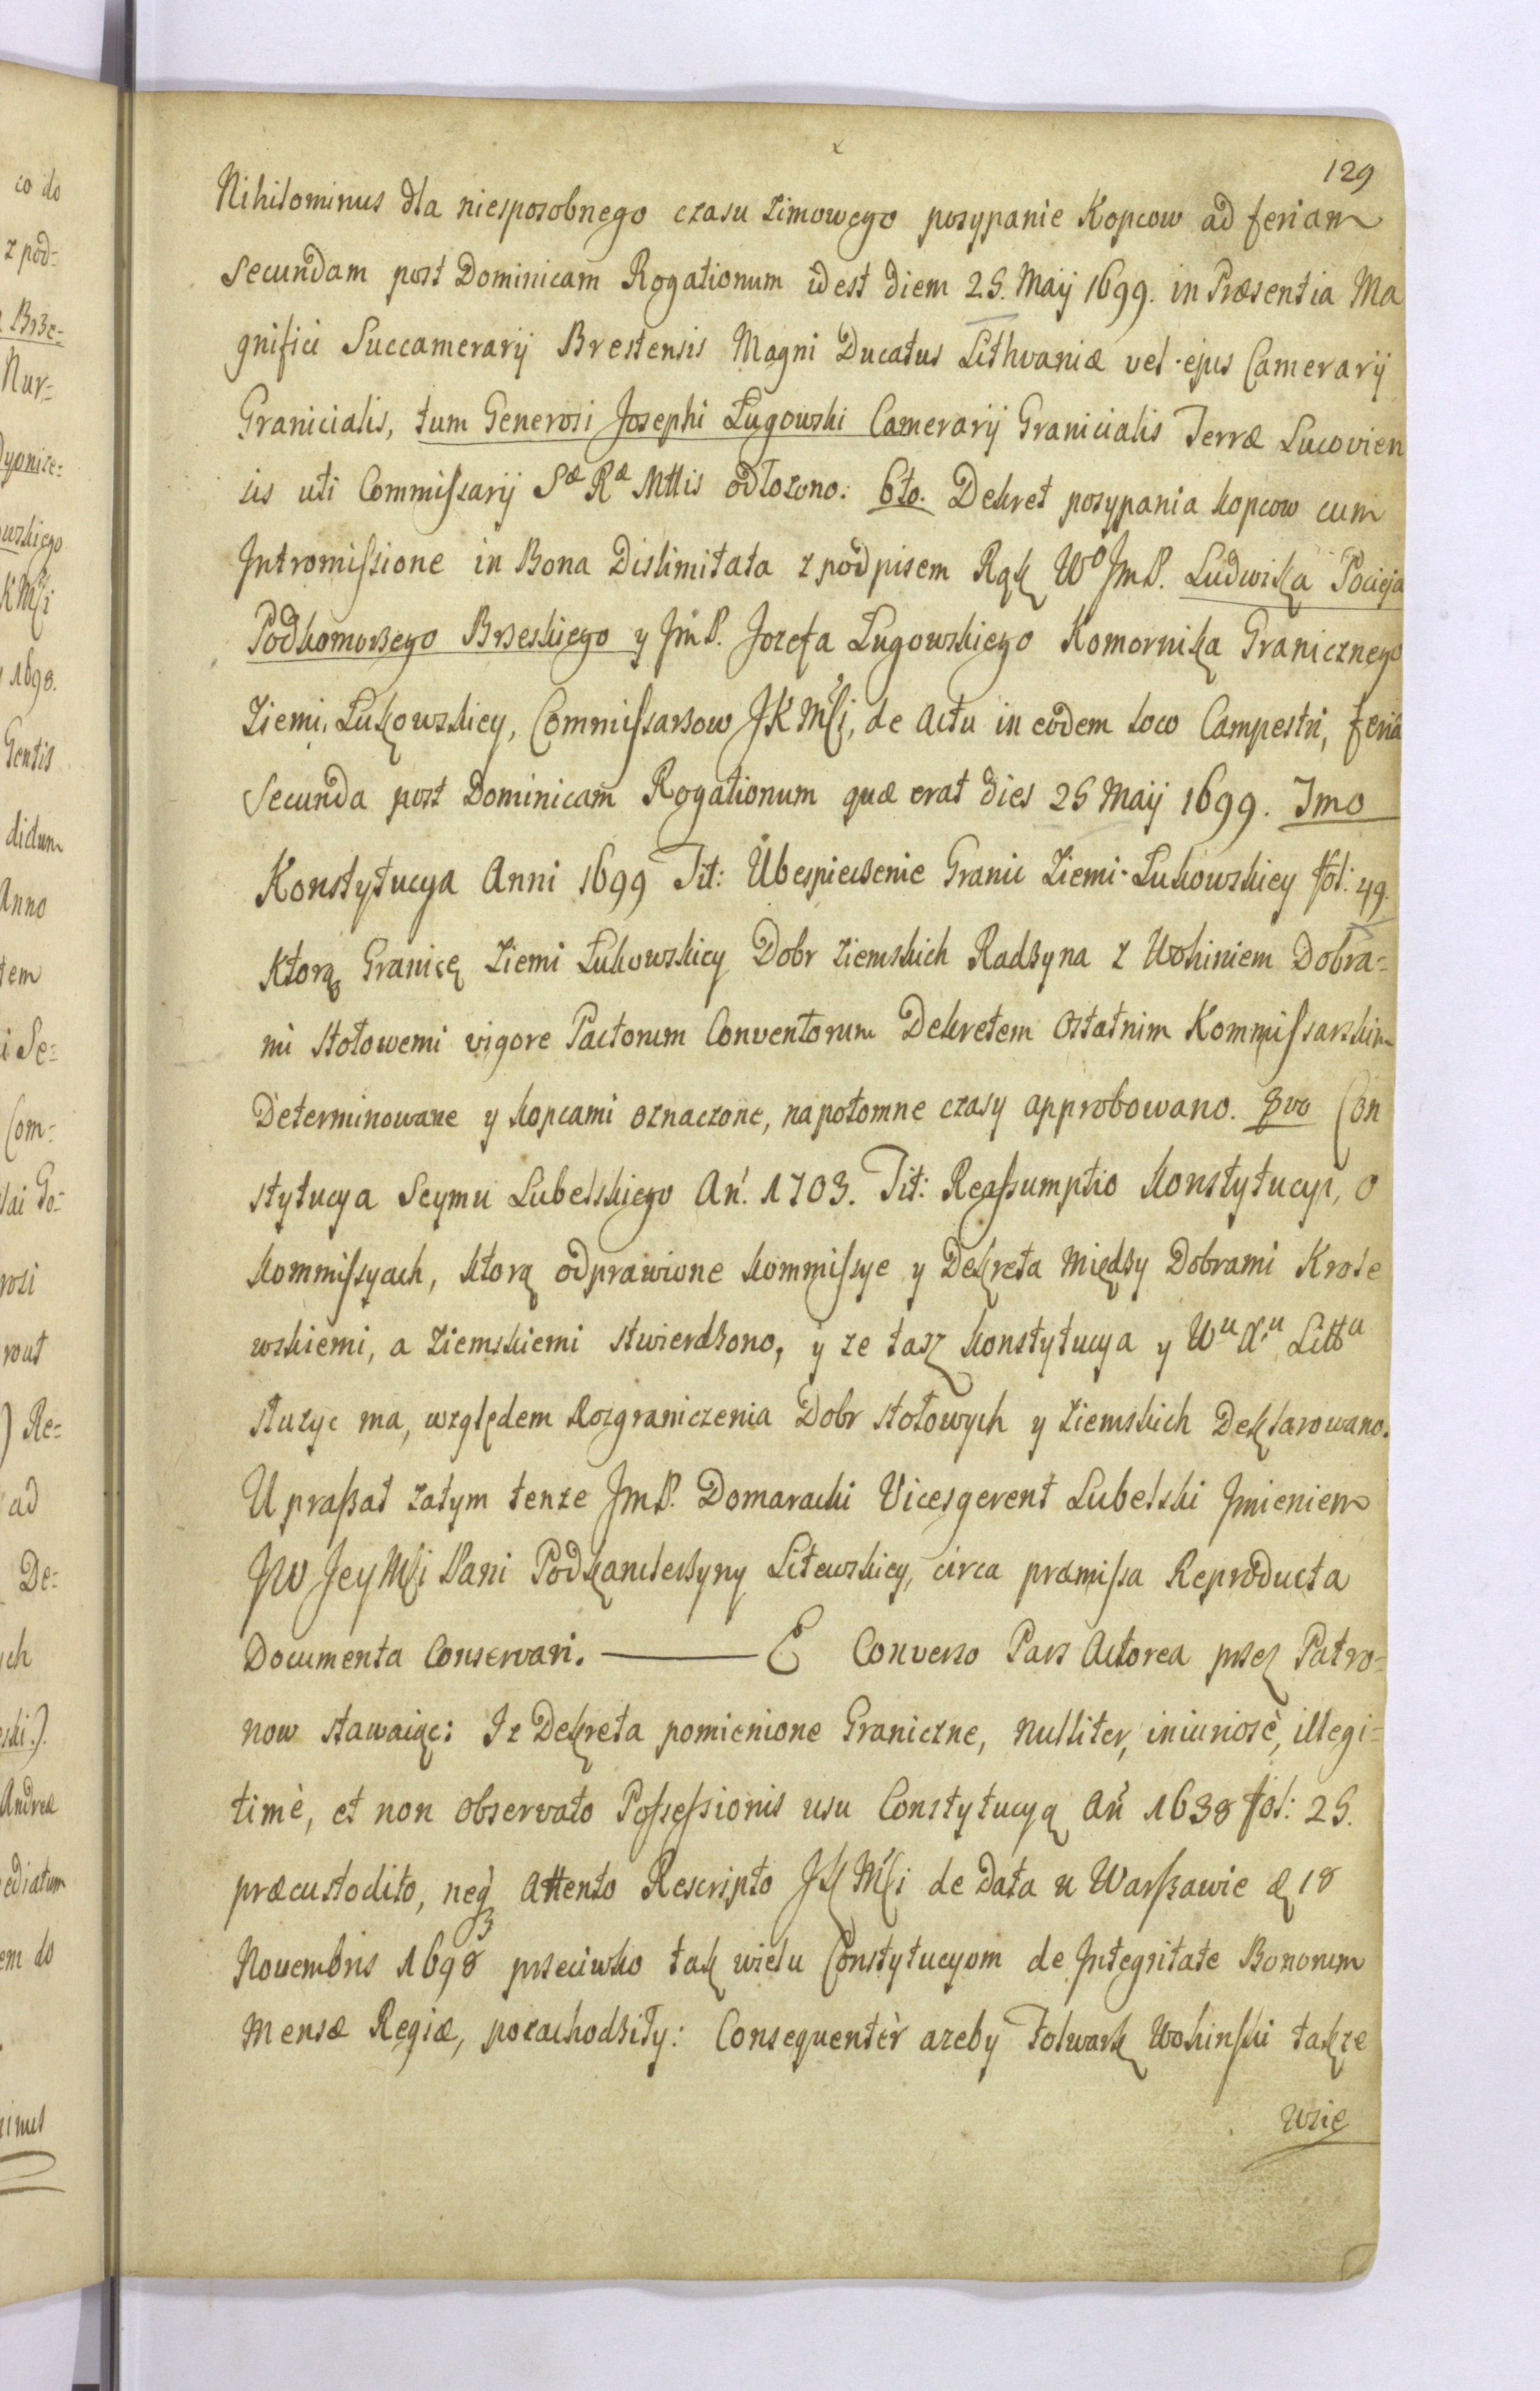 129
Nihilominus dla niesposobnego czasu zimowego posypanie Kopcow ad feriam
Secundam post Dominicam Rogationum idest diem 25. Maij 1699. in Præsentia Ma
gnifici Succamerarij Brestensis Magni Ducatus Lithvaniæ vel ejus Camerarij
Granicialis, tum Generosi Josephi Ługowski Camerarij Granicialis Terræ Lucovien
sis uti Commissarij Sæ Ræ Mttis odłozono. 6to. Dekret posypania kopcow cum
Intromissione in Bona Dislimitata z podpisem Rąk Wo JmP. Ludwika Pocieja
Podkomorzego Brzeskiego y JmP. Jozefa Ługowskiego Komornika Granicznego
Ziemi Łukowskiey, Commissarzow JKMści, de Actu in eodem loco Campestri, feria
Secunda post Dominicam Rogationum quæ erat dies 25 Maij 1699. 7mo
Konstytucya Anni 1699 Tit: Ubespieczenie Granic Ziemi Łukowskiey fol: 49.
Ktorą Granicę Ziemi Łukowskiey Dobr ziemskich Radzyna z Wohiniem Dobra=
mi stołowemi vigore Pactorum Conventorum Dekretem ostatnim Kommissarskim
Determinowane y kopcami oznaczone, napotomne czasy approbowano. 8vo Con
stytucya Seymu Lubelskiego An. 1703. Tit: Reassumptio konstytucyi, o
kommissyach, ktorą odprawione kommissye y Dekreta między Dobrami Krole
wskiemi, a ziemskiemi stwierdzono, y ze taz konstytucya y Wu Xu Littu
słuzyc ma, względem Rozgraniczenia Dobr stołowych y ziemskich Deklarowano.
Upraszał zatym tenze JmP. Domaracki Vicesgerent Lubelski Jmieniem
JW JeyMści Pani Podkanclerzyny Litewskiey, circa præmissa Reproducta
Documenta Conservari. ——— E Converso Pars Actorea przez Patro=
now stawaiąc: Iz Dekreta pomienione Graniczne, nulliter, iniuriosè, illegi=
timè, et non observato Possessionis usu Constytucyą An 1638 fol: 25.
præcustodito, neq; Attento Rescripto JKMści de Data w Warszawie d 18
3
Novembris 1698 przeciwko tak wielu Constytucyom de Integritate Bonorum
Mensæ Regiæ, pozachodziły: Consequentèr azeby Folwark Wohinski takze
wsie